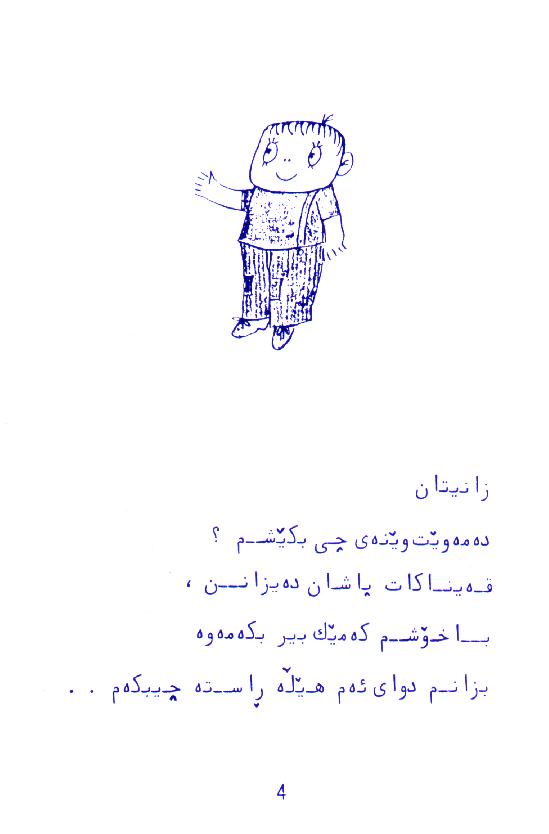 زانیتان
دەمەوێت وێنەی چی بکێشم ؟
قەیناکات پاشان دەیزانن ،
با خۆشم کەمێك بیر بکەمەوە
بزانم دوای ئەم هێڵە ڕاستە چیبکەم . .
4